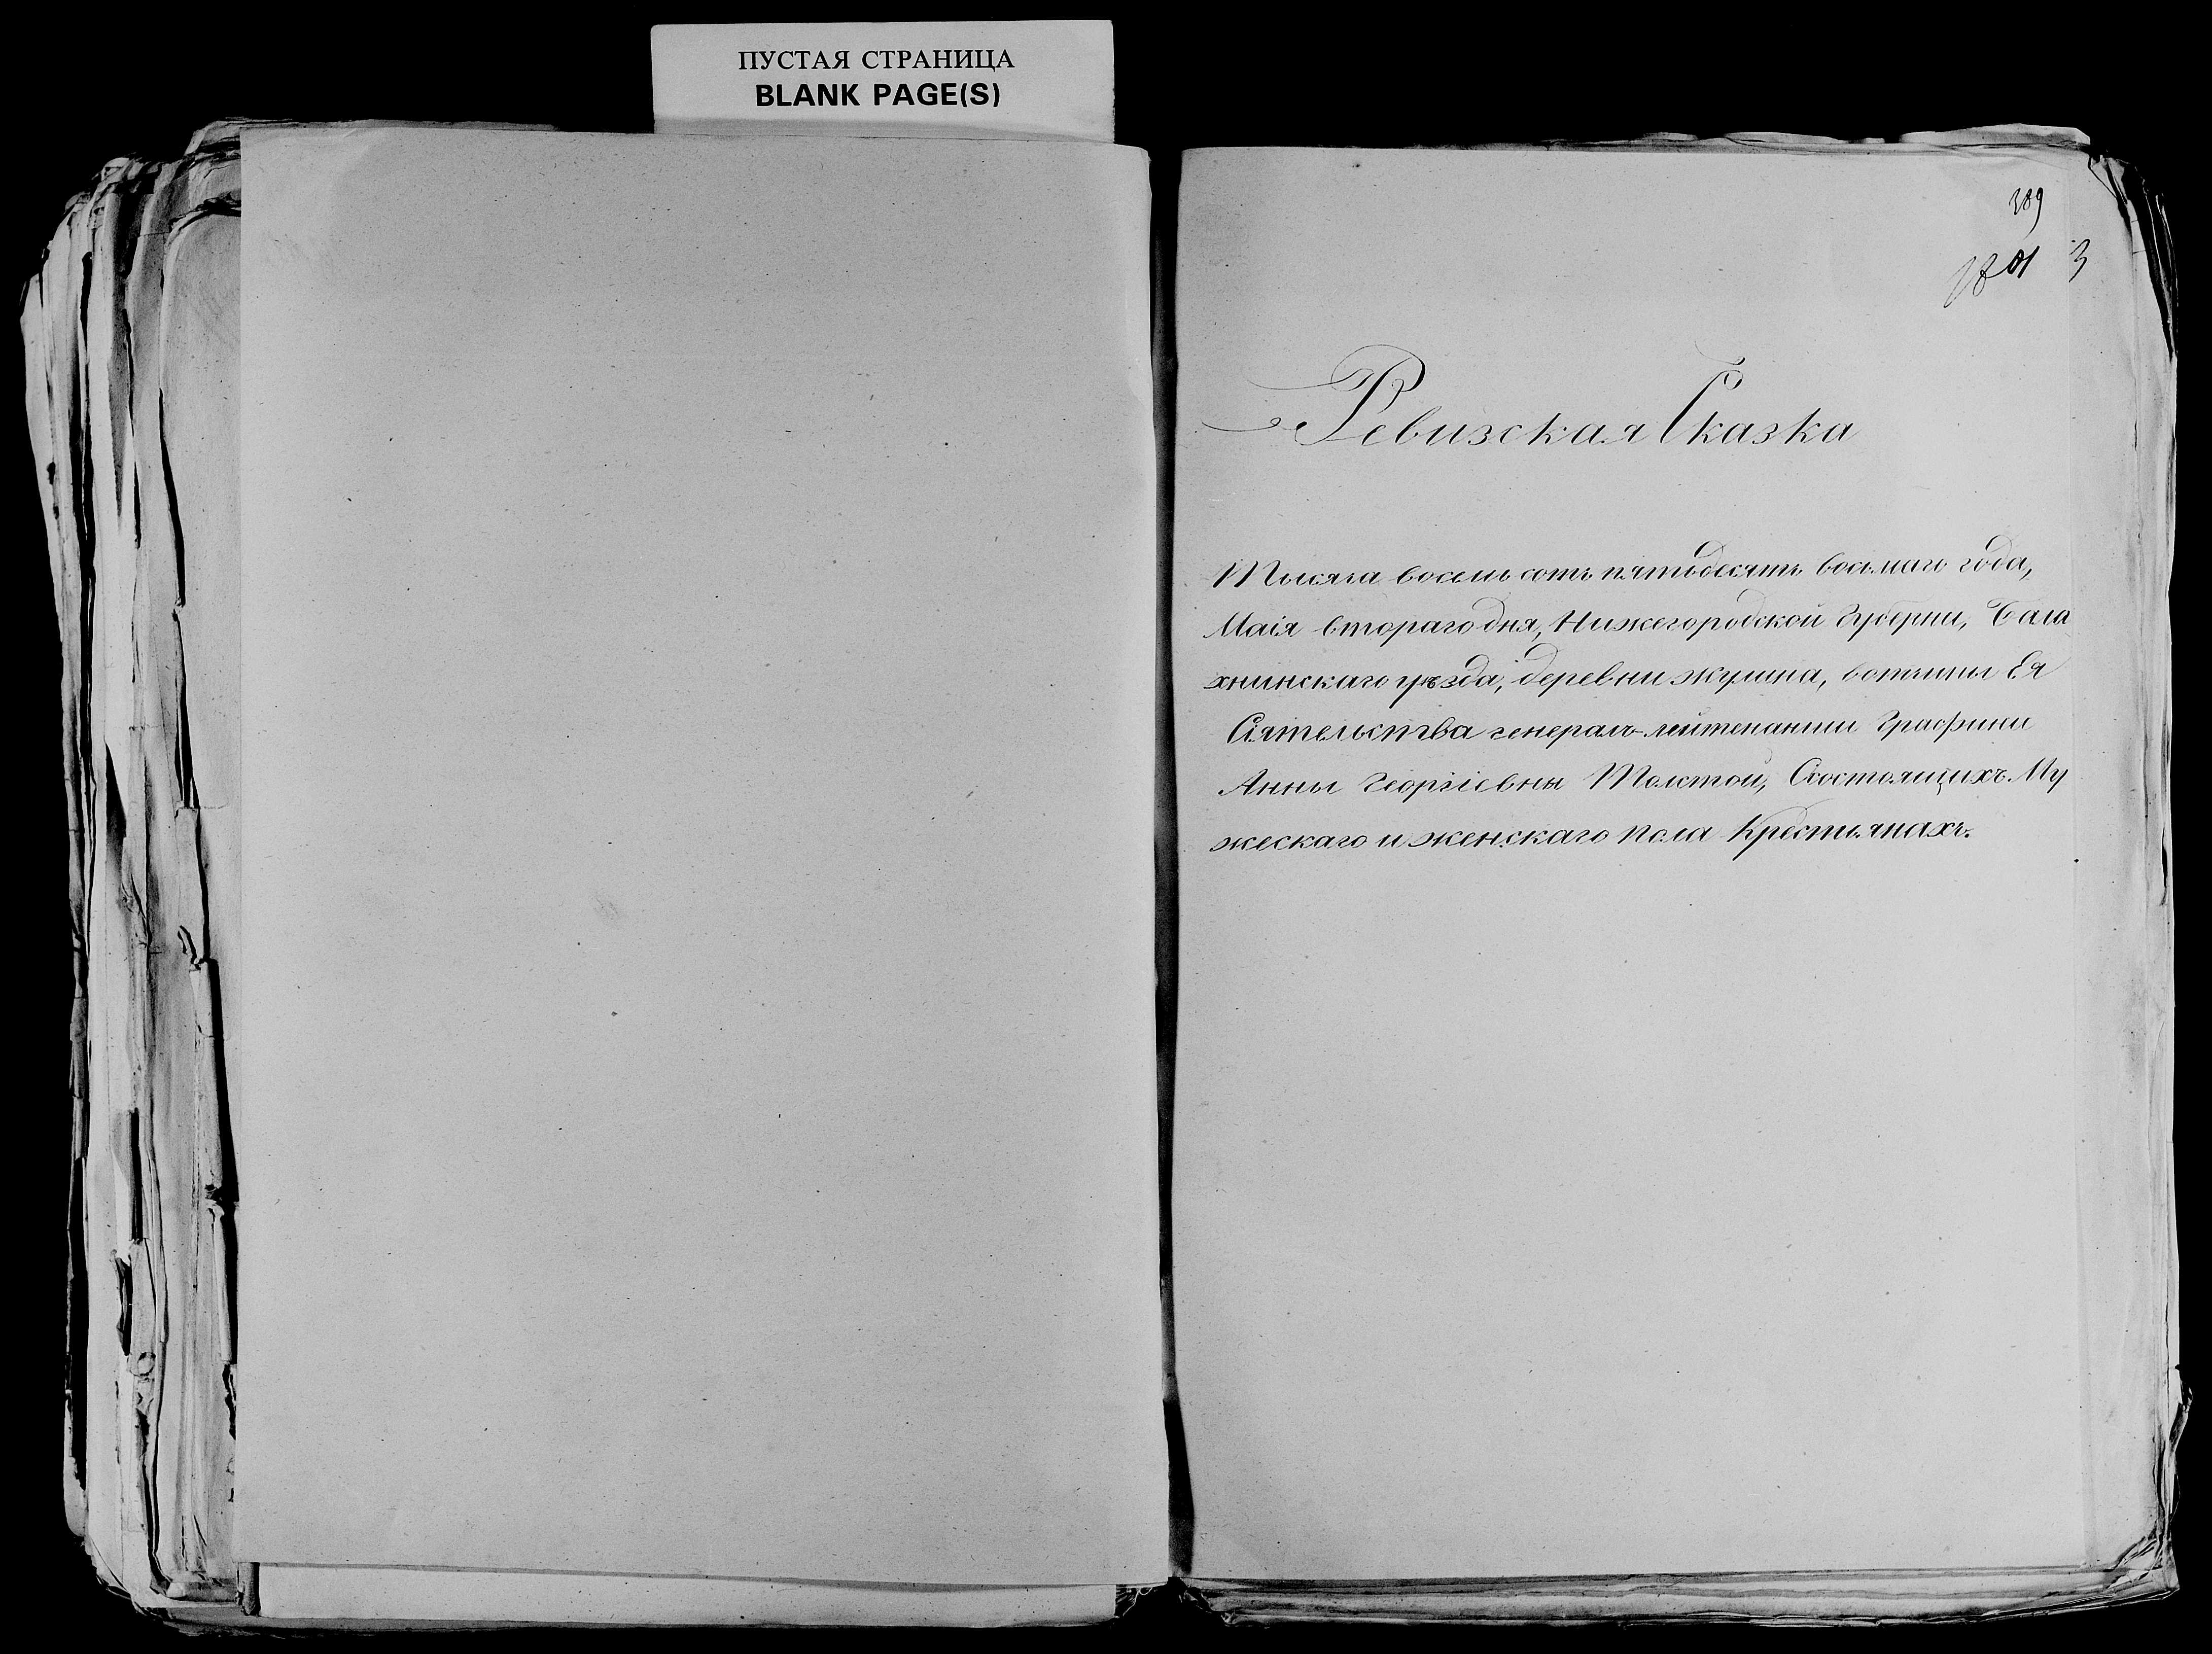 ПУСТАЯ СТРАНИЦА
BLANK PAGE(S)
389
3
Ревизская Сказка
Тысяча восемь сотъ пятьдесятъ восьмаго года,
Маія втораго дня, Нижегородской Губерни, Бала
хнинскаго уѣзда, деревни Жулина, вотчины Ея
Сіятельства генералъ-лейтенанши Графини
Анны Георгіевны Толстой, Состоящихъ Му
жескаго и женскаго пола Крестьянахъ.